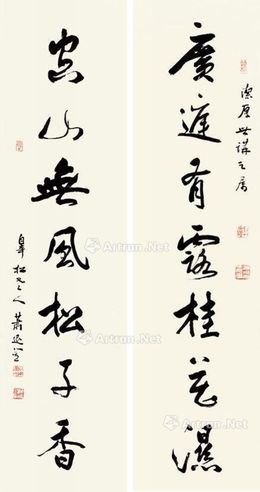 世講之属
廣庭有露桂花濕
空山無風松子香
皋松老人 蕭退
Artron.Net
Artron.Net
Artron.Net
Artron.Net